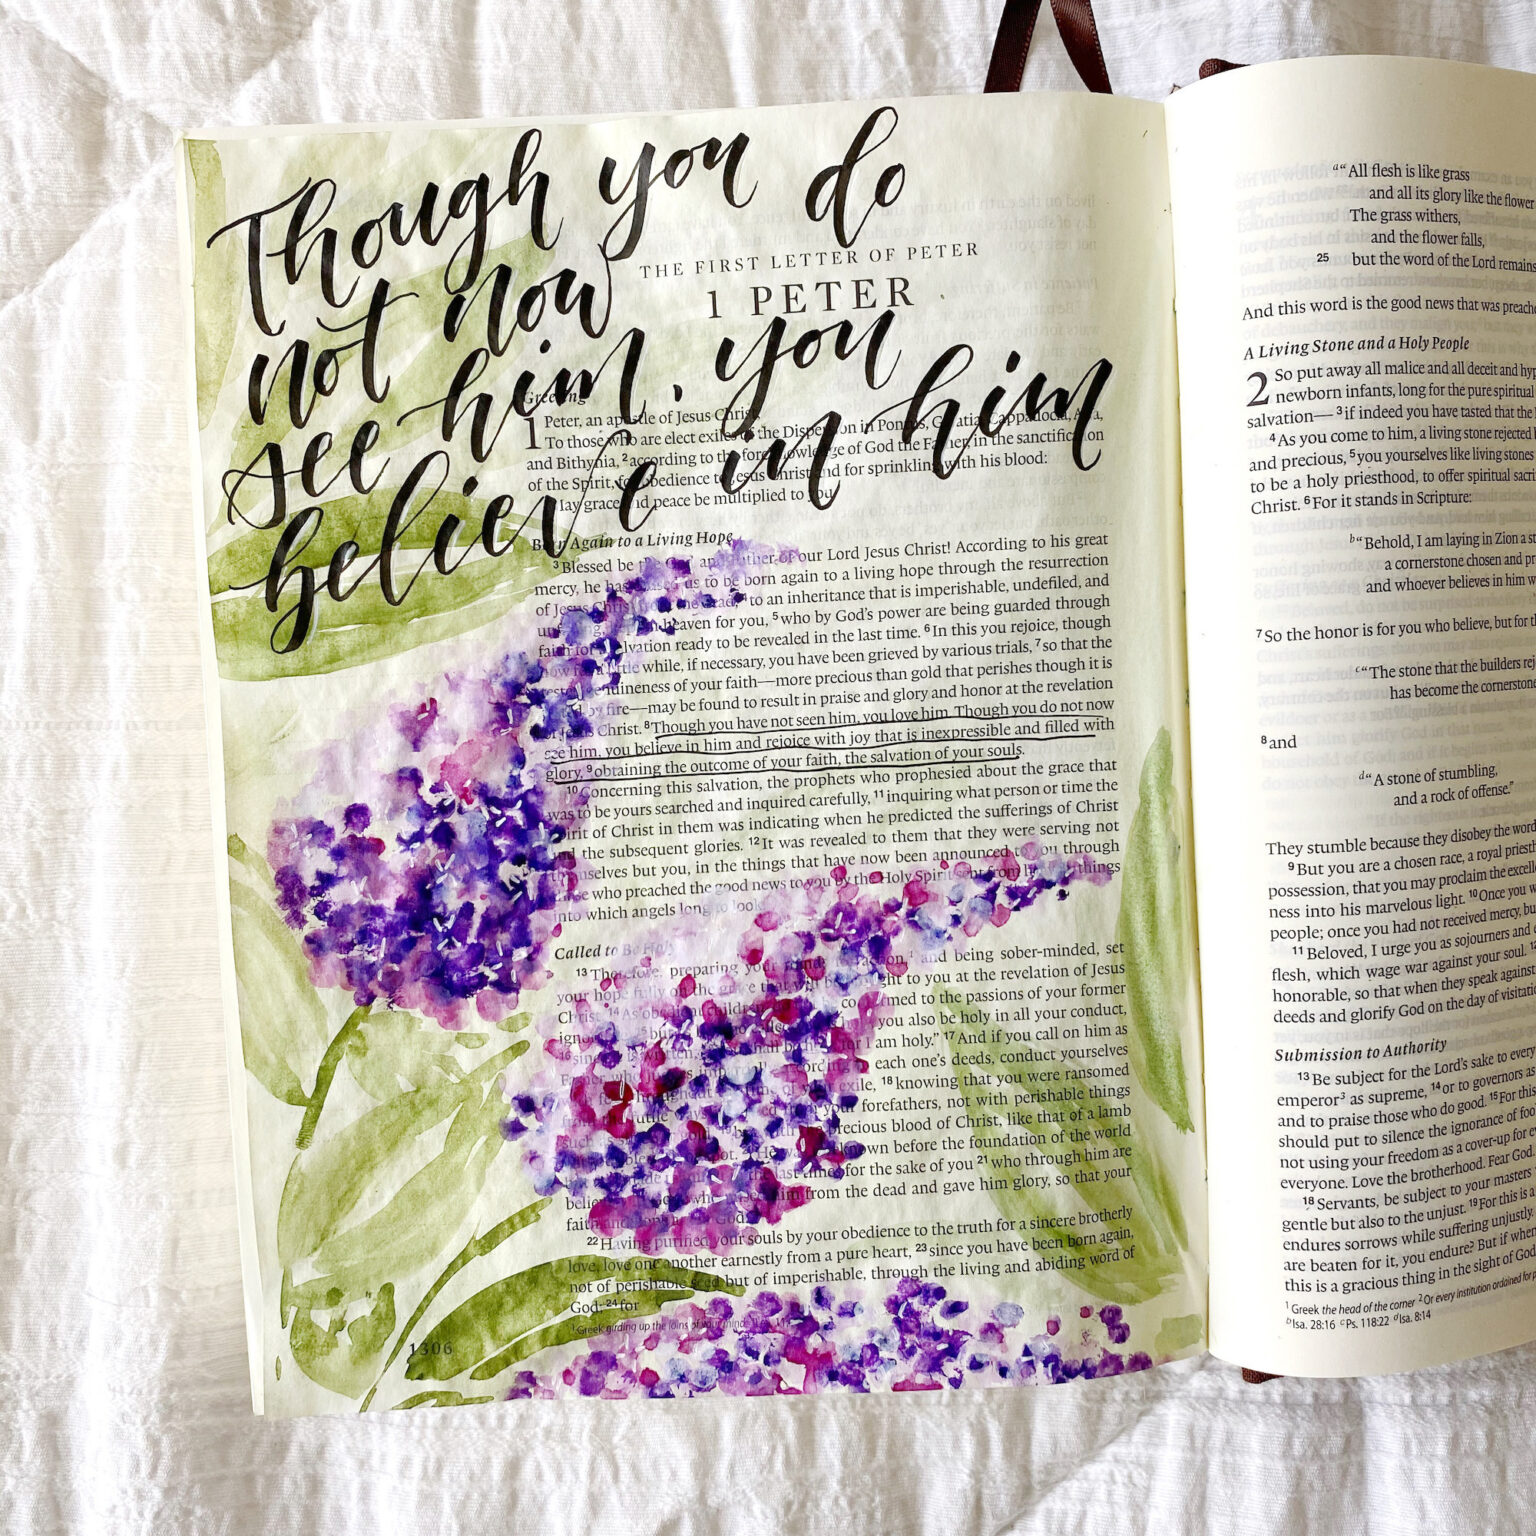 Though you do
not now
see him, you
believe in him
THE FIRST LETTER OF PETER
1 PETER
Greeting
1 Peter, an apostle of Jesus Christ,
To those who are elect exiles of the Dispersion in Pontus, Galatia, Cappadocia, Asia,
and Bithynia, 2 according to the foreknowledge of God the Father, in the sanctification
of the Spirit, for obedience to Jesus Christ and for sprinkling with his blood:
May grace and peace be multiplied to you.
Born Again to a Living Hope
3 Blessed be the God and Father of our Lord Jesus Christ! According to his great
mercy, he has caused us to be born again to a living hope through the resurrection
of Jesus Christ from the dead, 4 to an inheritance that is imperishable, undefiled, and
unfading, heaven for you, 5 who by God's power are being guarded through
faith for salvation ready to be revealed in the last time. 6 In this you rejoice, though
now for a little while, if necessary, you have been grieved by various trials, 7 so that the
tested genuineness of your faith—more precious than gold that perishes though it is
by fire—may be found to result in praise and glory and honor at the revelation
of Jesus Christ. 8 Though you have not seen him, you love him. Though you do not now
see him, you believe in him and rejoice with joy that is inexpressible and filled with
glory, 9 obtaining the outcome of your faith, the salvation of your souls.
10 Concerning this salvation, the prophets who prophesied about the grace that
was to be yours searched and inquired carefully, 11 inquiring what person or time the
Spirit of Christ in them was indicating when he predicted the sufferings of Christ
and the subsequent glories. 12 It was revealed to them that they were serving not
themselves but you, in the things that have now been announced to you through
those who preached the good news to you by the Holy Spirit sent from things
into which angels long to look.
Called to Be Holy
13 Therefore, preparing your action, 1 and being sober-minded, set
your hope fully on the grace that will be brought to you at the revelation of Jesus
Christ. 14 As obedient children, conformed to the passions of your former
15 but you also be holy in all your conduct,
16 since it is written, shall be for I am holy." 17 And if you call on him as
Father who according to each one's deeds, conduct yourselves
throughout time of your exile, 18 knowing that you were ransomed
from futile from your forefathers, not with perishable things
such precious blood of Christ, like that of a lamb
spot. known before the foundation of the world
the last times for the sake of you 21 who through him are
him from the dead and gave him glory, so that your
faith and God.
22 Having purified your souls by your obedience to the truth for a sincere brotherly
love, love one another earnestly from a pure heart, 23 since you have been born again,
not of perishable seed but of imperishable, through the living and abiding word of
God; 24 for
1 Greek girding up the loins of your mind
1306
a "All flesh is like grass
and all its glory like the flower
The grass withers,
and the flower falls,
25 but the word of the Lord remains
And this word is the good news that was preached
A Living Stone and a Holy People
2 So put away all malice and all deceit and
newborn infants, long for the pure spiritual
salvation— 3 if indeed you have tasted that the
4 As you come to him, a living stone rejected
and precious, 5 you yourselves like living stones
to be a holy priesthood, to offer spiritual
Christ. 6 For it stands in Scripture:
b "Behold, I am laying in Zion a
a cornerstone chosen and
and whoever believes in him
7 So the honor is for you who believe, but for
c "The stone that the builders
has become the cornerstone
8 and
d "A stone of stumbling,
and a rock of offense."
They stumble because they disobey the word
9 But you are a chosen race, a royal
possession, that you may proclaim the
ness into his marvelous light. 10 Once you
people; once you had not received mercy,
11 Beloved, I urge you as sojourners and
flesh, which wage war against your soul.
honorable, so that when they speak against
deeds and glorify God on the day of
Submission to Authority
13 Be subject for the Lord's sake to every
emperor 3 as supreme, 14 or to governors as
and to praise those who do good. 15 For this
should put to silence the ignorance of
not using your freedom as a cover-up for
everyone. Love the brotherhood. Fear God.
18 Servants, be subject to your masters
gentle but also to the unjust. 19 For this is a
endures sorrows while suffering unjustly.
are beaten for it, you endure? But if when
this is a gracious thing in the sight of God
1 Greek the head of the corner 2 Or every institution ordained for
b Isa. 28:16 c Ps. 118:22 d Isa. 8:14